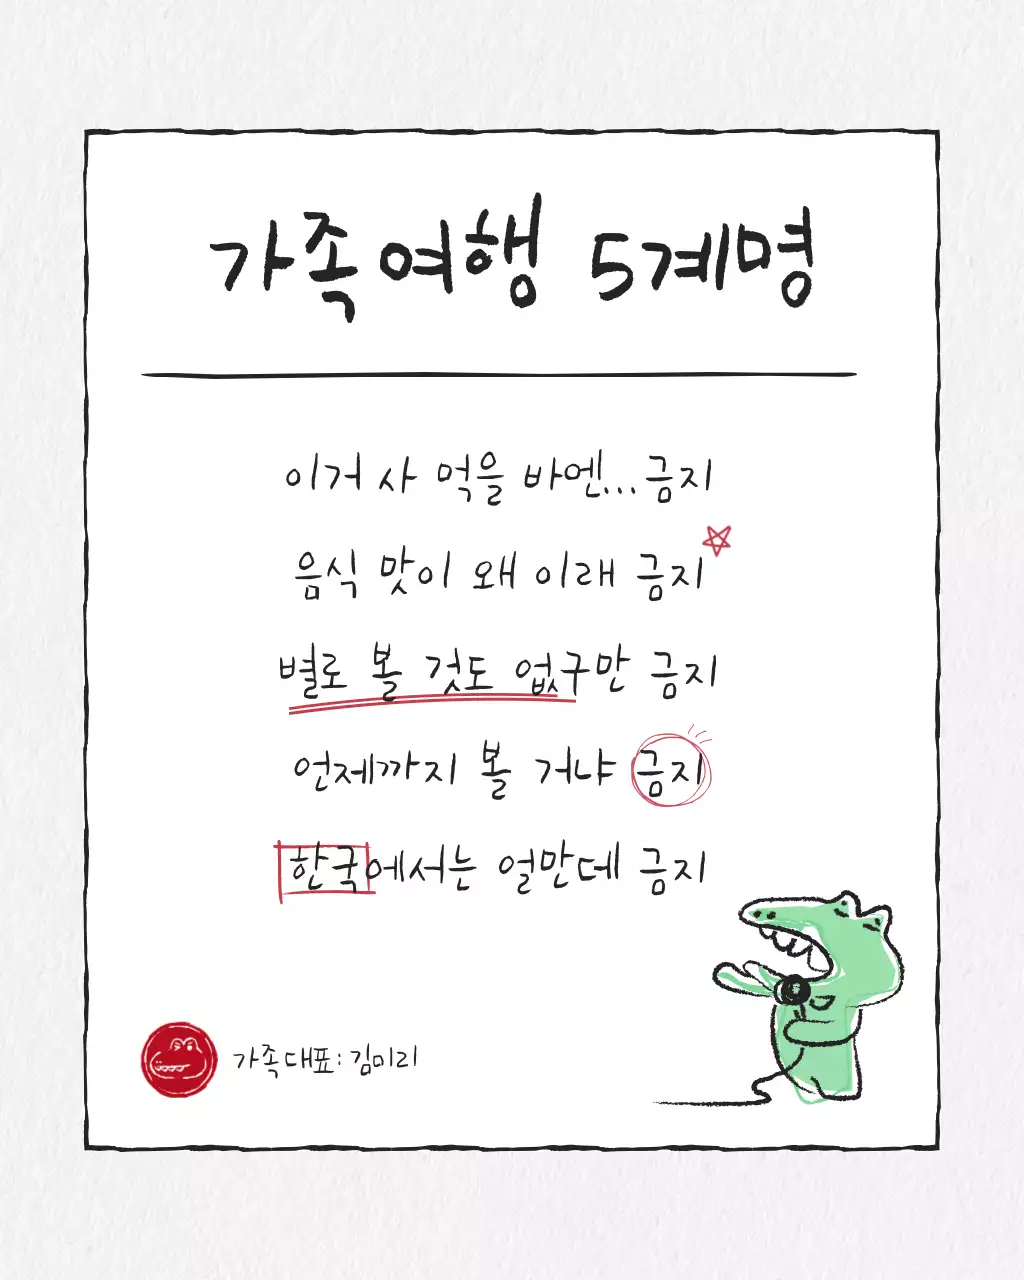 가족여행 5계명
이거 사 먹을 바엔... 금지
음식 맛이 왜 이래 금지
별로 볼 것도 없구만 금지
언제까지 볼 거냐 금지
한국에서는 얼만데 금지
가족대표: 김미리